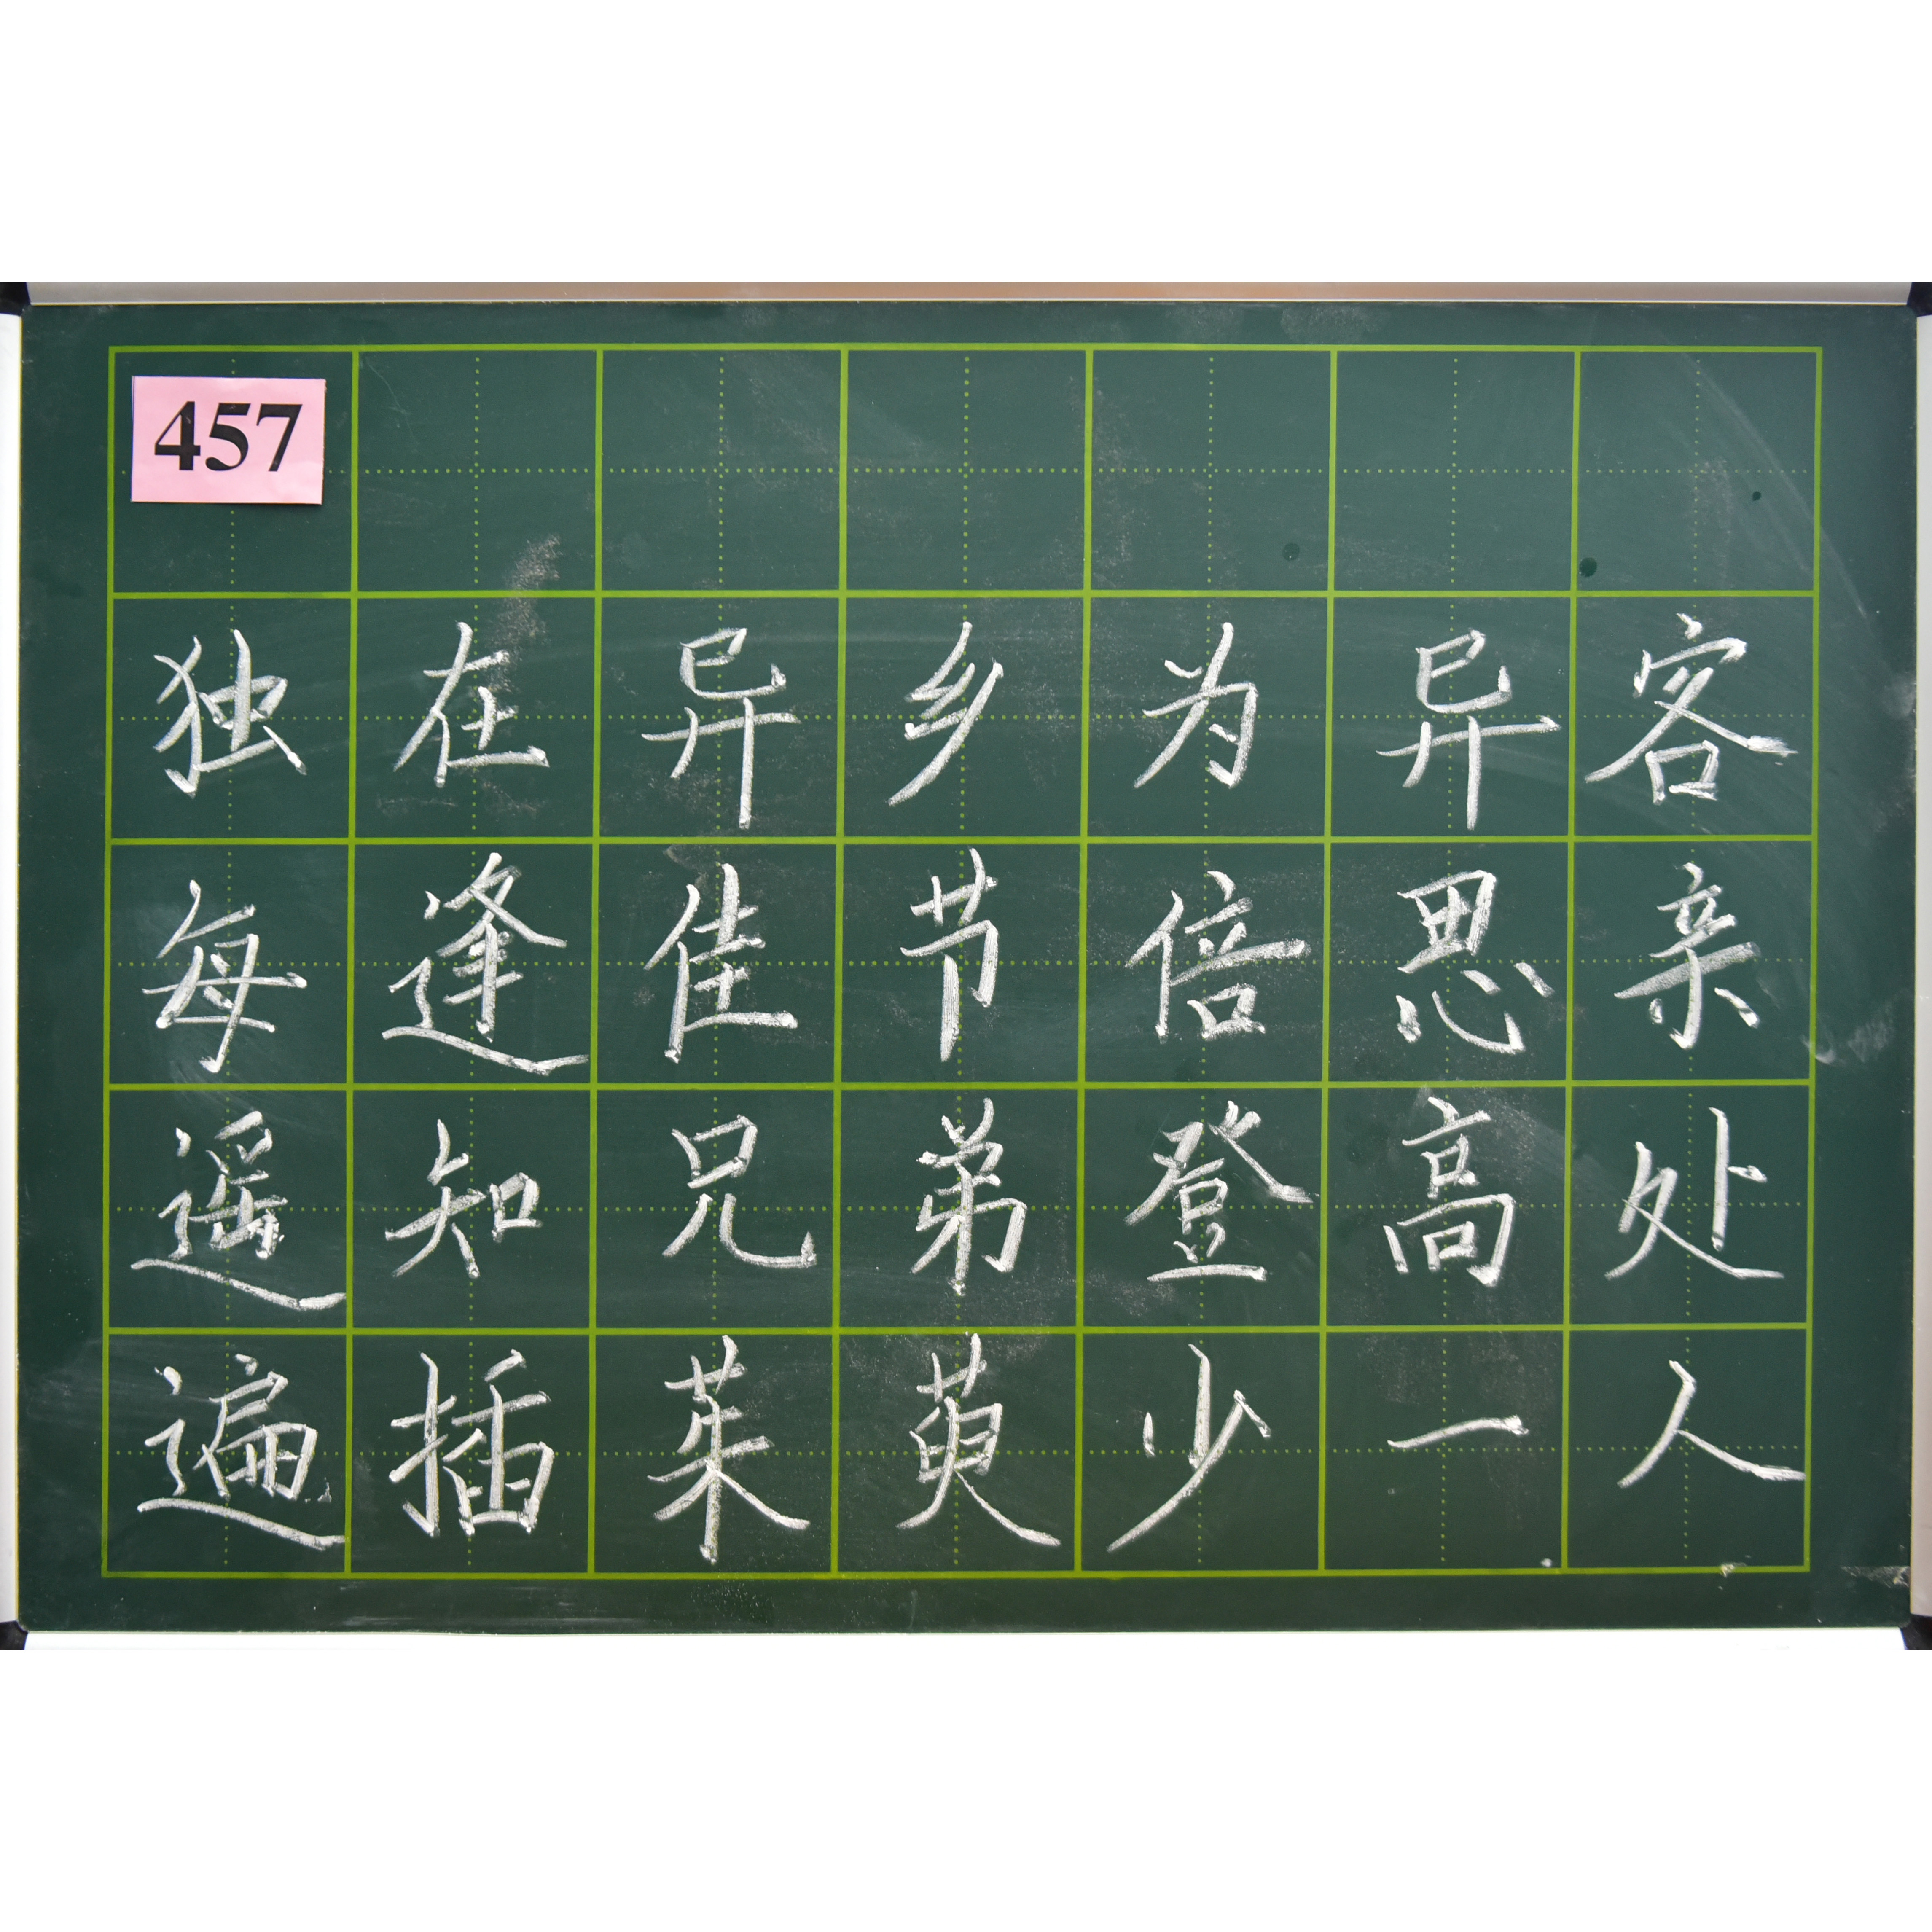 457
独在异乡为异客
每逢佳节倍思亲
遥知兄弟登高处
遍插茱萸少一人